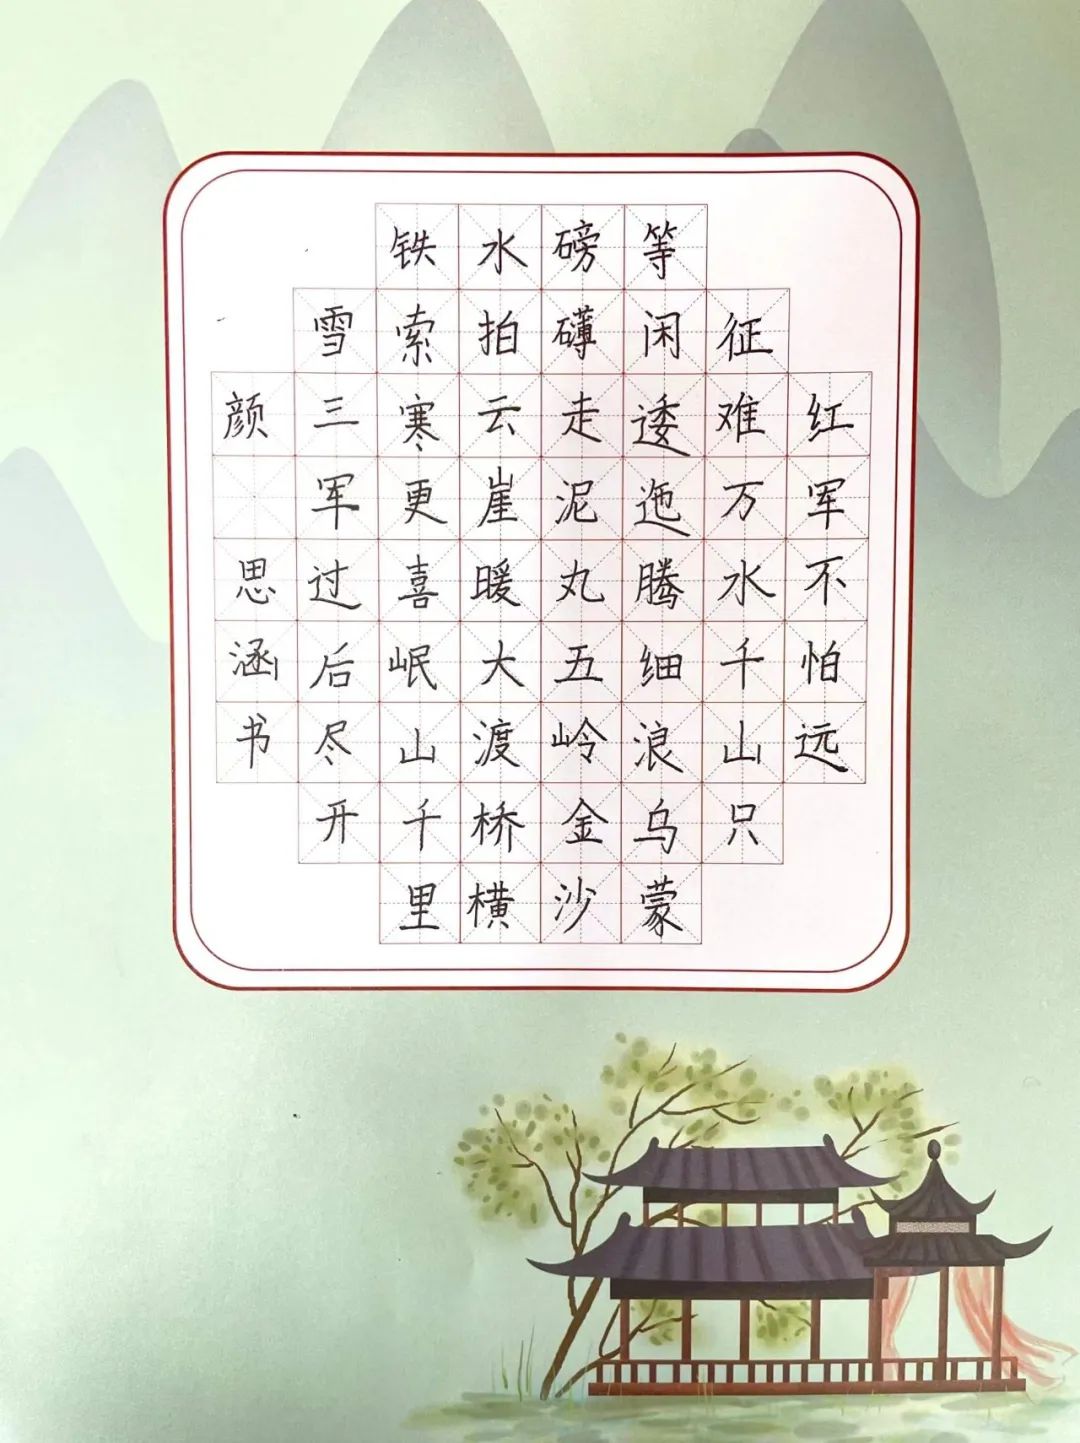 红军不怕远
征难万水千山只
等闲逶迤腾细浪乌蒙
磅礴走泥丸五岭金沙
水拍云崖暖大渡桥横
铁索寒更喜岷山千里
雪三军过后尽开
颜 思涵书